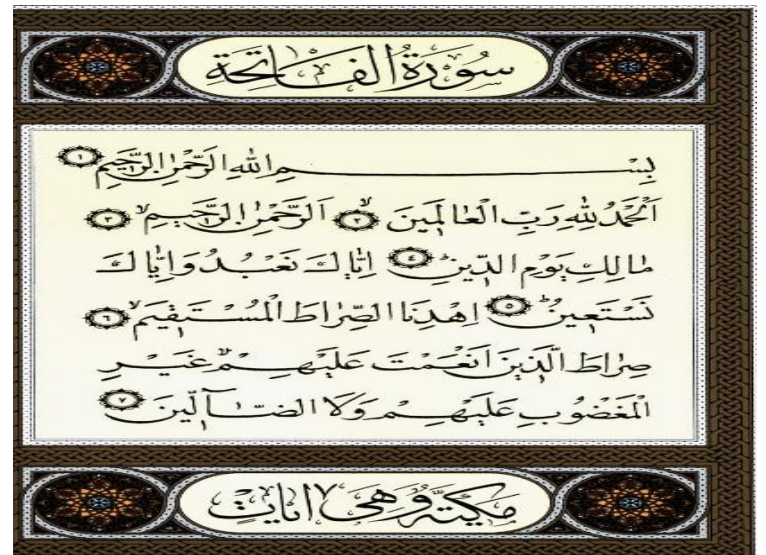 سُورَةُ الْفَاتِحَةِ
بِسْمِ اللهِ الرَّحْمٰنِ الرَّحِيمِ ١
اَلْحَمْدُ لِلّٰهِ رَبِّ الْعَالَمِينَ ٢ اَلرَّحْمٰنِ الرَّحِيمِ ٣
مَالِكِ يَوْمِ الدِّينِ ٤ اِيَّاكَ نَعْبُدُ وَاِيَّاكَ
نَسْتَعِينُ ٥ اِهْدِنَا الصِّرَاطَ الْمُسْتَقِيمَ ٦
صِرَاطَ الَّذِينَ اَنْعَمْتَ عَلَيْهِمْ غَيْرِ
الْمَغْضُوبِ عَلَيْهِمْ وَلَا الضَّآلِّينَ ٧
مَكِّيَّةٌ وَهِيَ ٧ اٰيَاتٍ